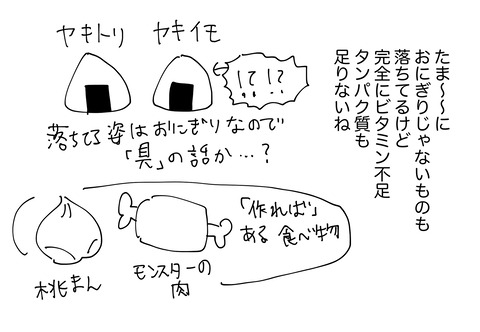 たま〜〜に
おにぎりじゃないものも
落ちてるけど
完全にビタミン不足
タンパク質も
足りないね
ヤキトリ
ヤキイモ
!?!?
落ちてる姿はおにぎりなので
「具」の話か…?
桃まん
モンスターの
肉
「作れば」
ある食べ物